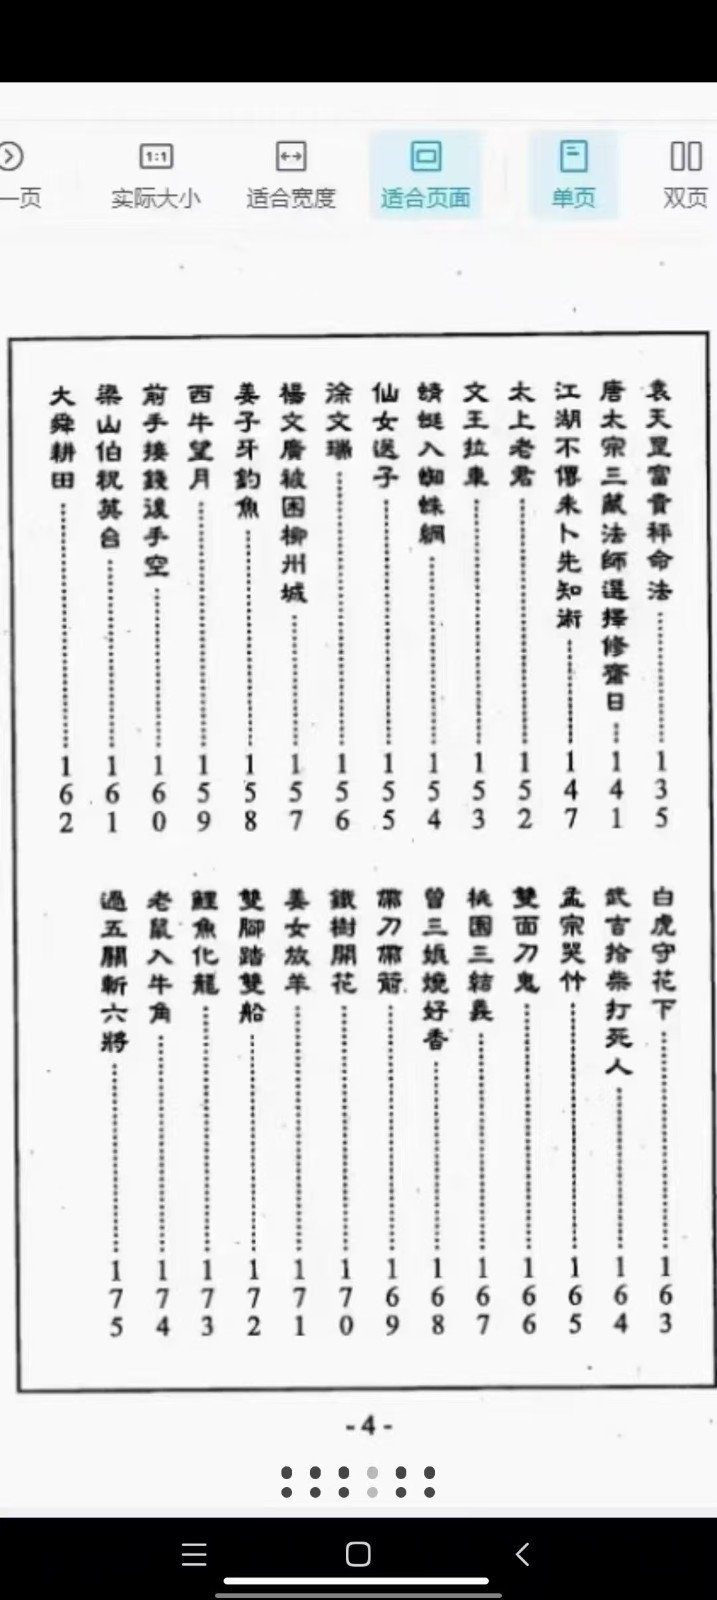 一页
实际大小
适合宽度
适合页面
单页
双页
1:1
袁天罡富貴秤命法 135
唐太宗三藏法師選擇修齋日 141
江湖不傳未卜先知術 147
太上老君 152
文王拉車 153
蜻蜓入蜘蛛網 154
仙女送子 155
涂文瑞 156
楊文廣被困柳州城 157
姜子牙釣魚 158
西牛望月 159
前手接錢後手空 160
梁山伯祝英台 161
大舜耕田 162
白虎守花下 163
武吉拾柴打死人 164
孟宗哭竹 165
雙面刀鬼 166
桃園三結義 167
曾三娘燒好香 168
帶刀帶箭 169
鐵樹開花 170
姜女放羊 171
雙腳踏雙船 172
鯉魚化龍 173
老鼠入牛角 174
過五關斬六將 175
-4-